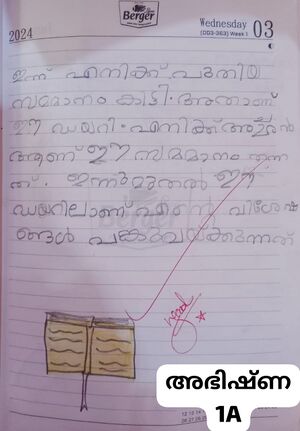 Berger
2024
Wednesday 03
(003-363) Week 1
ഇന്ന് എനിക്ക് പുതിയ
സമ്മാനം കിട്ടി. അതാണ്
ഈ ഡയറി. എനിക്ക് അച്ഛൻ
ആണ് ഈ സമ്മാനം തന്ന
ത്. ഇന്നുമുതൽ ഈ
ഡയറിലാണ് എന്റെ വിശേഷ
ങ്ങൾ പങ്കുവെയ്ക്കുന്നത്
അഭിഷ്ണ
1A